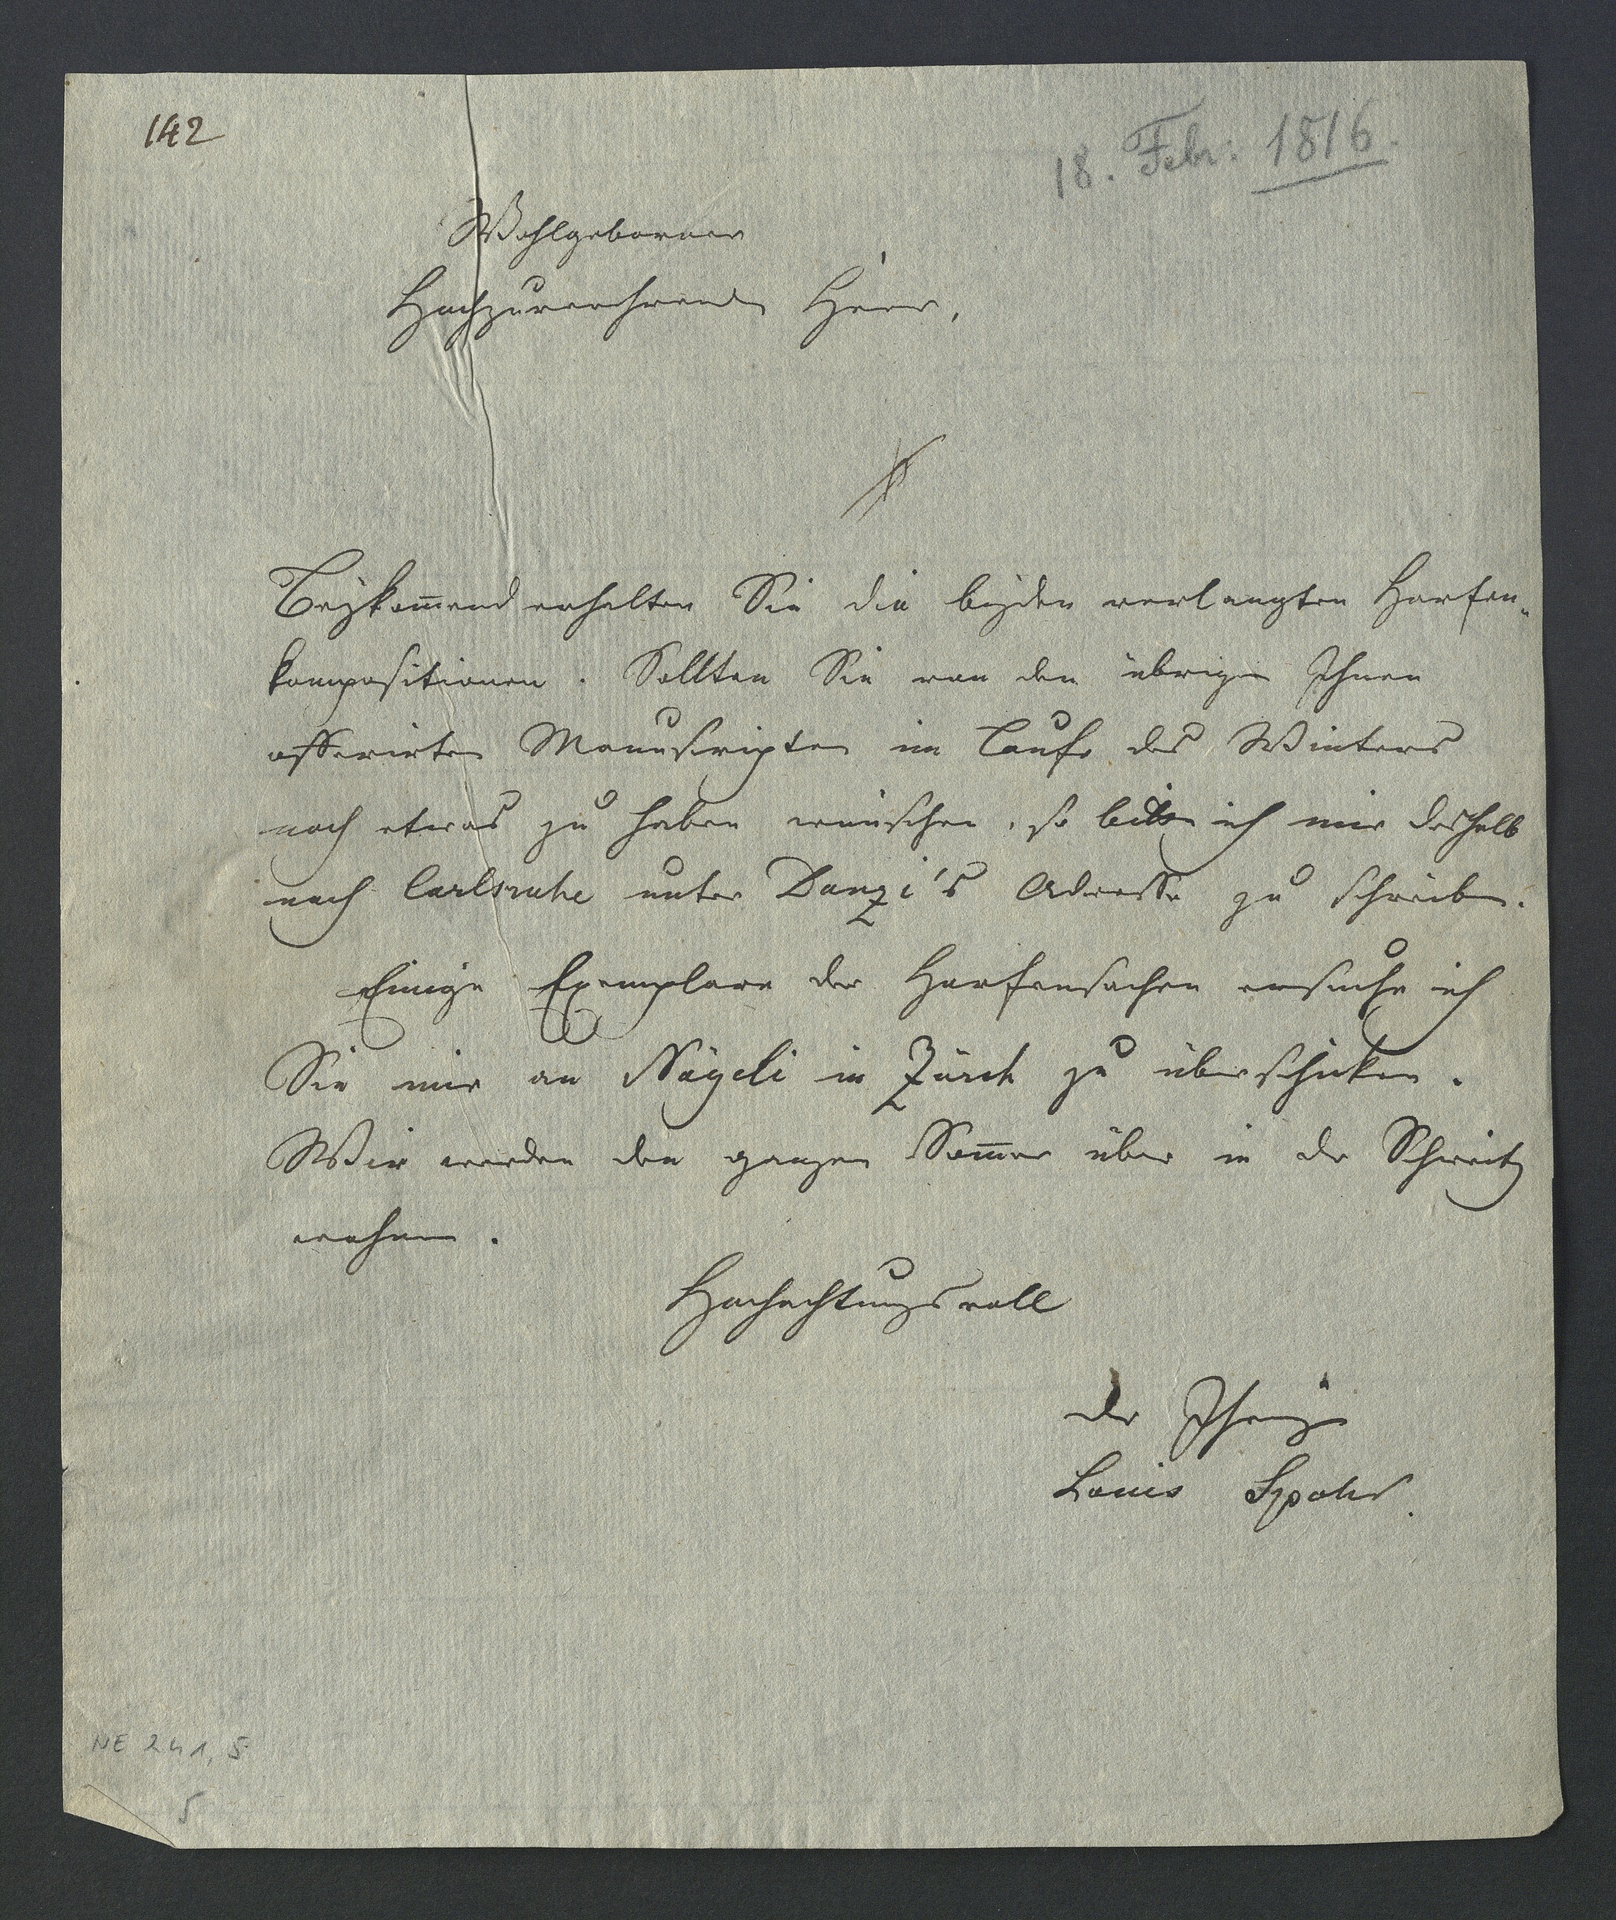 142
18. Febr. 1816.
Wohlgeborner
Hochzuverehrender Herr,
Beykom̅end erhalten Sie die beyden verlangten Harfen-
kompositionen. Sollten Sie von den übrigen Ihnen
offerirten Manuskripten im Laufe des Winters
noch etwas zu haben wünschen, so bitte ich mir deshalb
nach Carlsruhe unter Danzi's Adresse zu schreiben.
Einige Exemplare der Harfensachen ersuche ich
Sie mir an Nägeli in Zürch zu überschicken.
Wir werden den ganzen Som̅er über in der Schweitz
wohnen.
Hochachtungsvoll
der Ihrige
Louis Spohr.
NE 241, 5
5